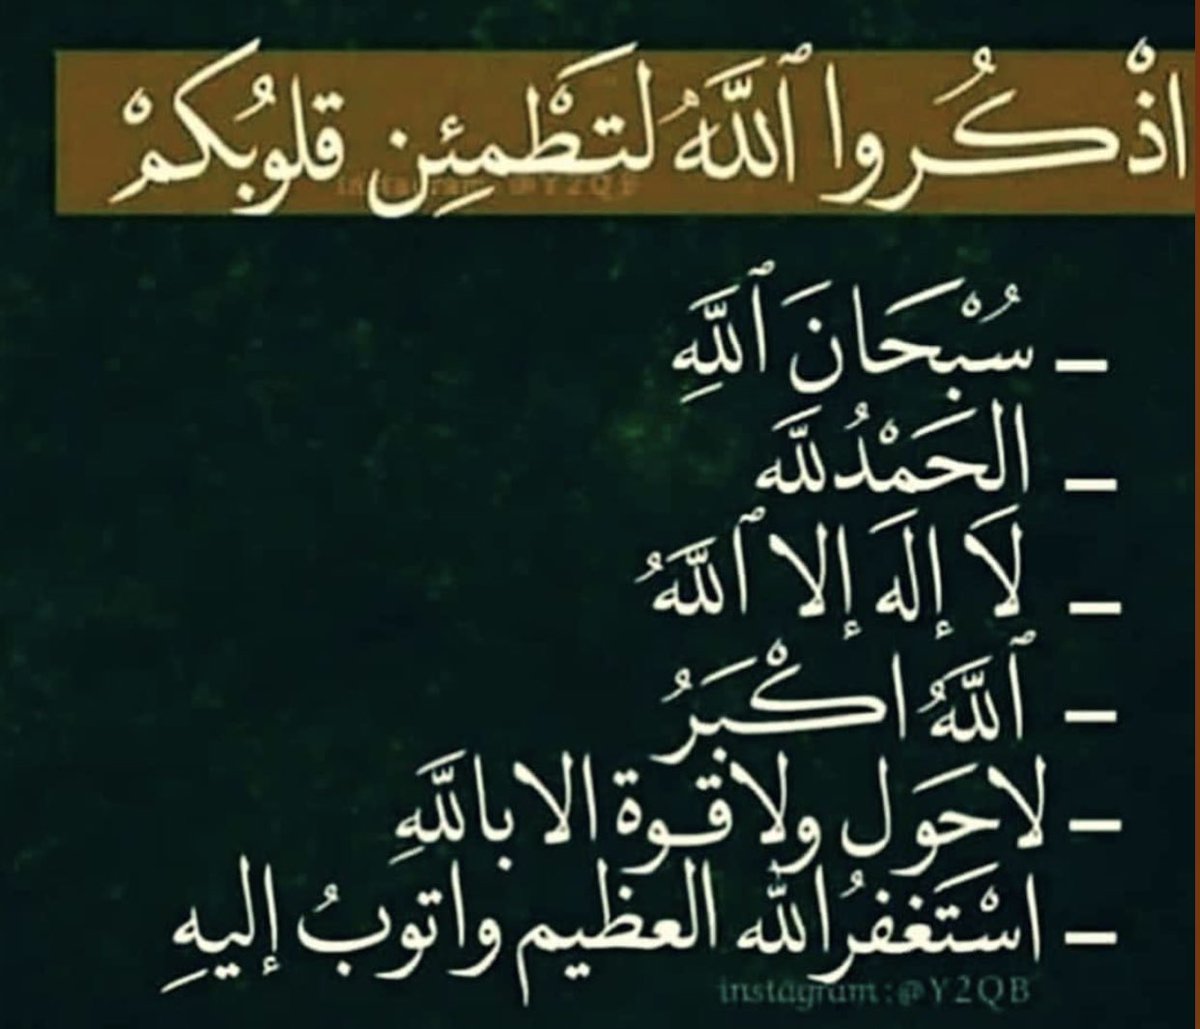 اذْكُروا ٱللَّهُ لتَطْمئِن قلوُبكمْ
instagram:@Y2QB
– سُبْحَانَ ٱللَّهِ
– الحَمْدُللَّه
– لَا إلَه إلا ٱللَّهُ
– ٱللَّهُ اكْبَرُ
– لاحَول ولاقـوة الا باللَّهِ
– اسْتَغفرُالله العظيم واتوبُ إليهِ
instagram:@Y2QB